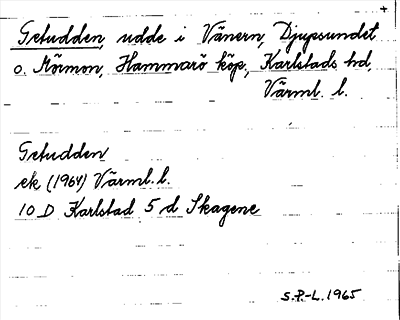 +
Getudden, udde i Vänern, Djupsundet
o. Mörmon, Hammarö köp., Karlstads hd,
Värml. l.
Getudden
ek (1964) Värml. l.
10 D Karlstad 5 d Skagene
S.P.-L. 1965